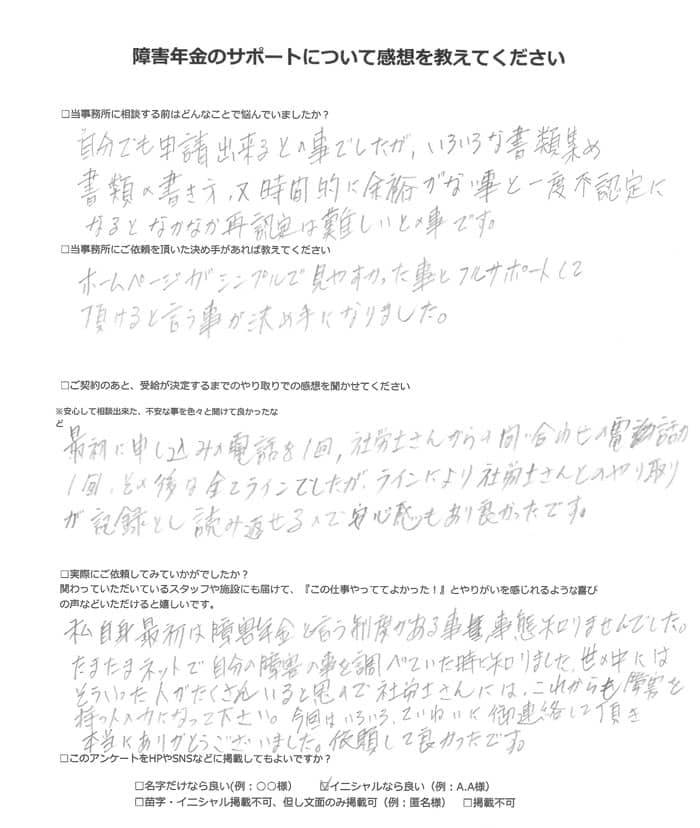 障害年金のサポートについて感想を教えてください
□当事務所に相談する前はどんなことで悩んでいましたか?
自分でも申請出来るとの事でしたが、いろいろな書類集め
書類の書き方、又時間的に余裕がない事と一度不認定に
なるとなかなか再認定は難しいとの事です。
□当事務所にご依頼を頂いた決め手があれば教えてください
ホームページがシンプルで見やすかった事とフルサポートして
頂けると言う事が決め手になりました。
□ご契約のあと、受給が決定するまでのやり取りでの感想を聞かせてください
※安心して相談出来た、不安な事を色々と聞けて良かったな
ど
最初に申し込みの電話を1回、社労士さんからの問い合わせの電話が
1回、その後は全てラインでしたが、ラインにより社労士さんとのやり取り
が記録とし読み返せるので安心感もあり良かったです。
□実際にご依頼してみていかがでしたか?
関わっていただいているスタッフや施設にも届けて、『この仕事やっててよかった!』とやりがいを感じれるような喜び
の声などいただけると嬉しいです。
私自身最初は障害年金と言う制度がある事事態知りませんでした。
たまたまネットで自分の障害の事を調べていた時に知りました、世の中には
そういった人がたくさんいると思うので社労士さんには、これからも障害を
持つ人の力になって下さい。今回はいろいろ、ていねいに御連絡して頂き
本当にありがとうございました。依頼して良かったです。
□このアンケートをHPやSNSなどに掲載してもよいですか?
□名字だけなら良い(例:○○様) ☑イニシャルなら良い(例:A.A様)
□苗字・イニシャル掲載不可、但し文面のみ掲載可(例:匿名様) □掲載不可